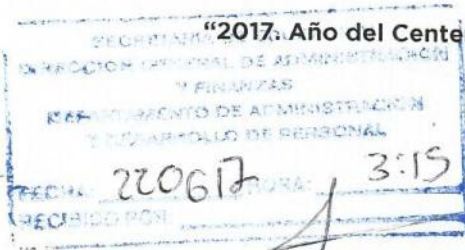 “2017. Año del Cente
DIRECCION GENERAL DE ADMINISTRACION
Y FINANZAS
DEPARTAMENTO DE ADMINISTRACION
Y DESARROLLO DE PERSONAL
FECHA: 220617 HORA: 3:15
RECIBIDO POR: